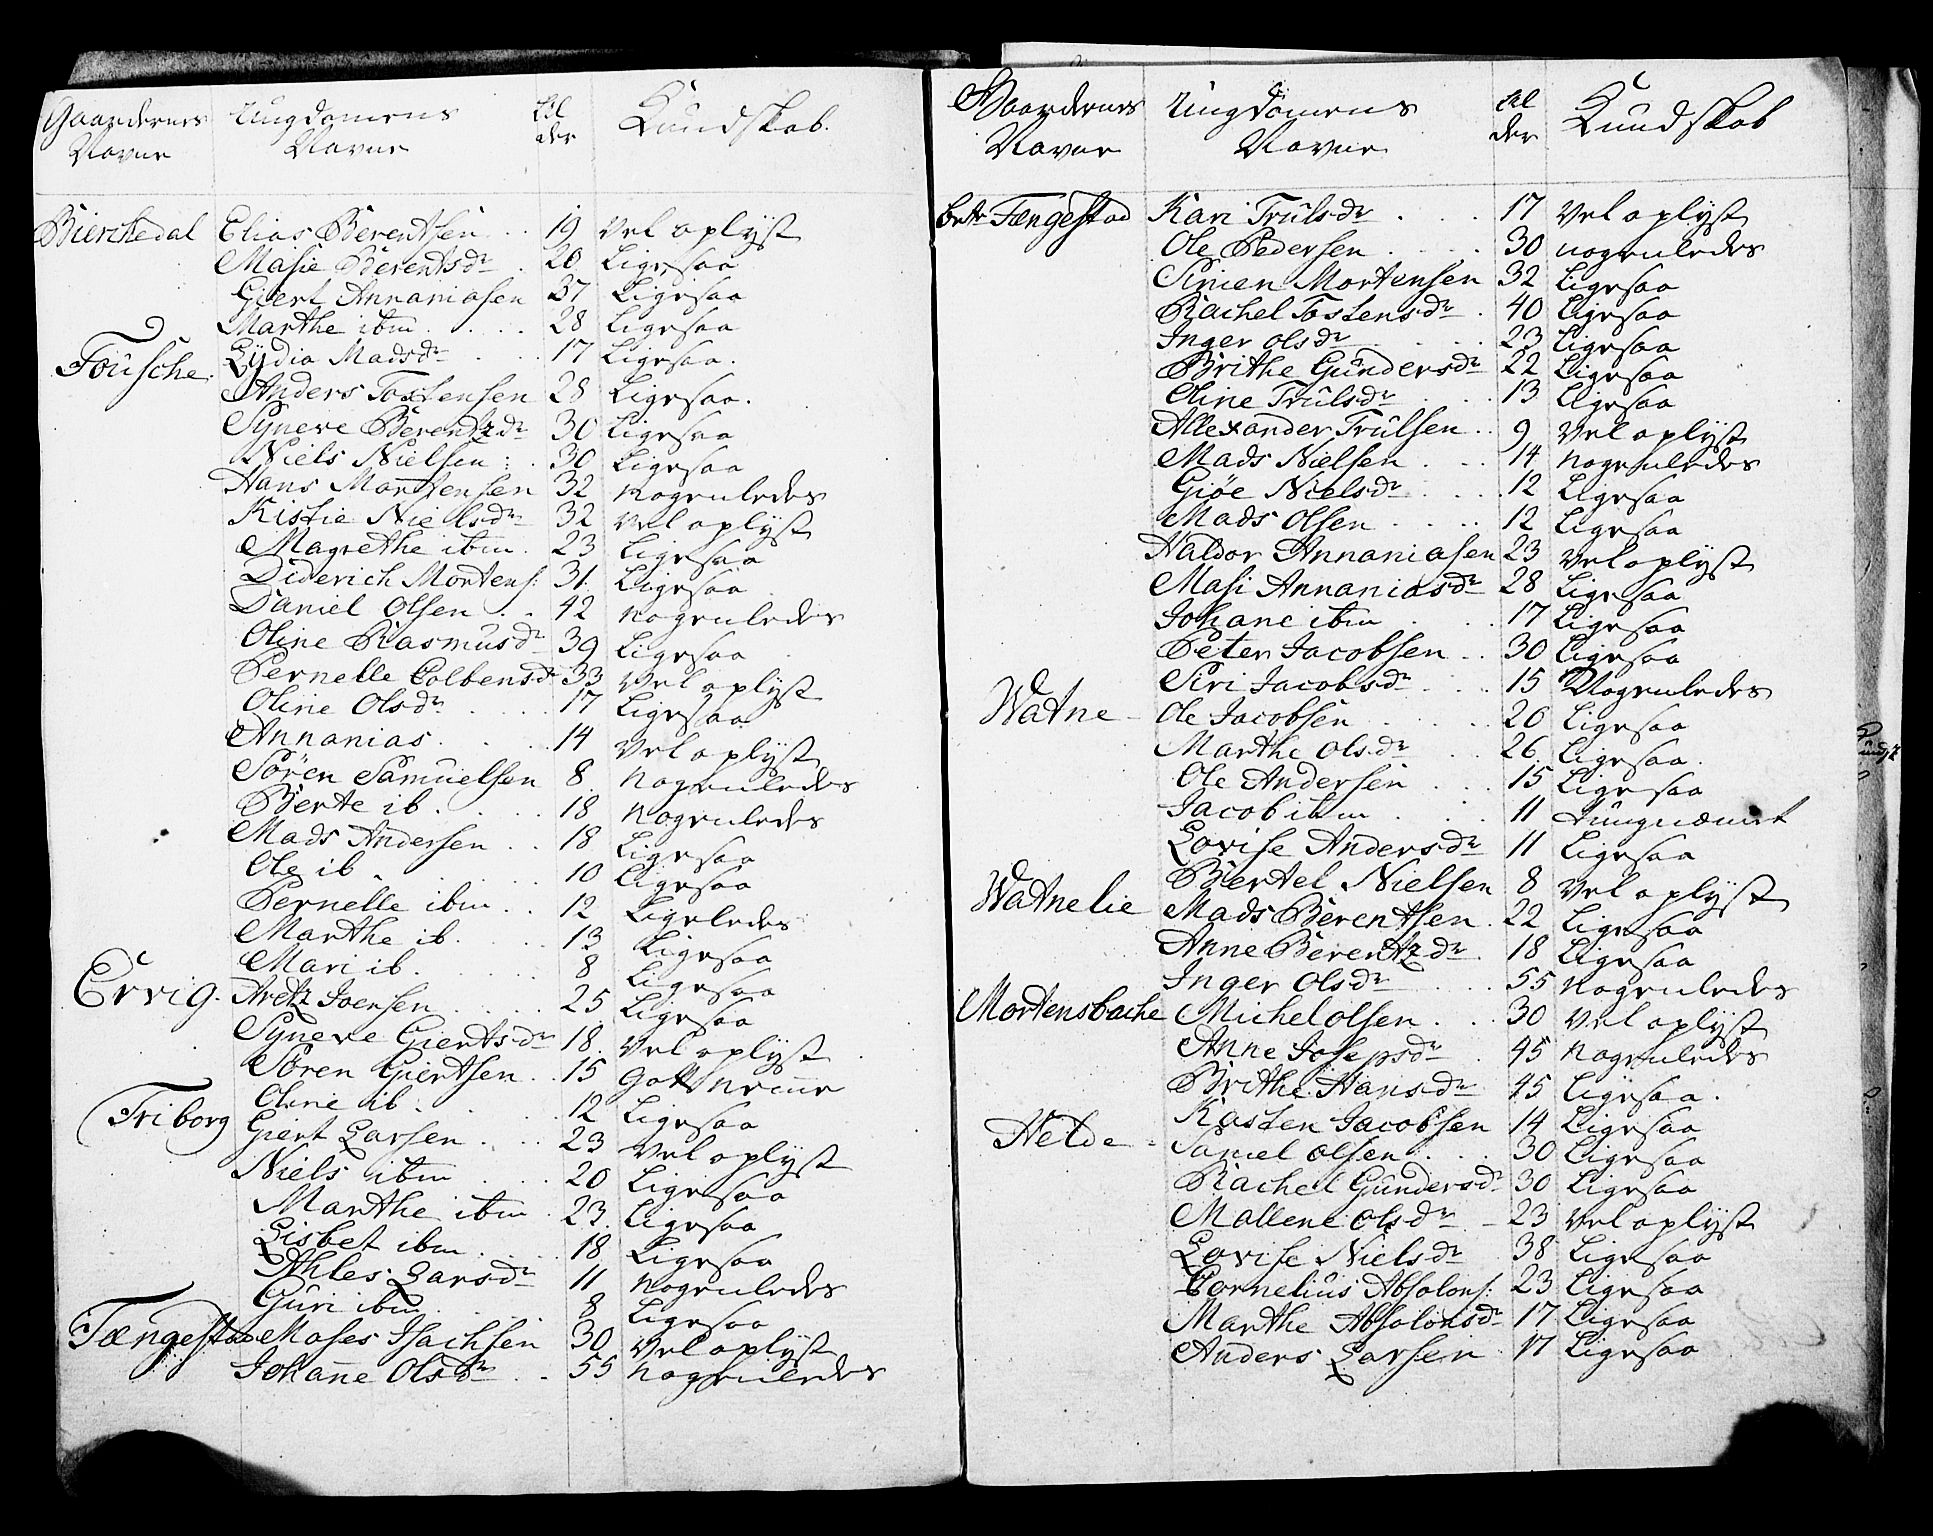 Gaardernes Navne | Ungdomens Navne | Al der | Kundskab.
Bierchedal Elias Berentsen . . 19 Vel oplyst
Masie Berentsdr . 20 Ligesaa
Giert Annaniasen 37 Ligesaa
Marthe ibm . . . . 28 Ligesaa
Fousche. Lydia Madsdr . . . 17 Ligesaa.
Anders Tostensen 28 Ligesaa.
Syneve Berentzdr 30 Ligesaa
Niels Nielsen : . 30 Ligesaa
Hans Mortensen 32 nogenledes
Kistie Nielsdr 32 Vel oplyst
Magrethe ibm . 23 Ligesaa
Diderich Mortens: 31. Ligesaa
Daniel Olsen . . 42 nogenledes
Oline Rasmusdr 39 Ligesaa
Pernelle Colbensdr 33 Vel oplyst
Oline Olsdr . . . . 17 Ligesaa
Annanias . . . . 14 Vel oplyst
Sören Samuelsen 8. Nogenledes
Berte ib . . . . 18 Nogenledes
Mads Andersen . . 18 Ligesaa
Ole ib . . . . . 10 Ligesaa
Pernelle ibm . . 12 Ligeledes
Marthe ib. . . . 13 Ligesaa
Mari ib. . . . . 8 Ligesaa
Ervig. Aretz Joensen . . . . 25 Ligesaa
Syneve Giertsdr 18. Vel oplyst
Sören Giertsen . . 15 Gott Nemme
Oline ib . . . . . 12 Ligesaa
Friborg Giert Larsen . . . 23 Vel oplyst
Niels ibm . . . . 20 Ligesaa
Marthe ibm . 23. Ligesaa
Lisbet ibm . . . . 18 Ligesaa
Ahles Larsdr 11 Nogenledes
Guri ibm . . . . 8 Ligesaa
Tængestad Moses Isachsen 30 Vel oplyst
Johanne Olsdr . . 55 Nogenledes
Gaardernes Navne | Ungdomens Navne | Al der | Kundskab
Tængestad Kari Trulsdr . . . 17 Vel oplyst
Ole Pedersen . . . . 30 nogenledes
Simen Mortensen 32 Ligesaa
Rachel Tostensdr . 40 Ligesaa
Inger Olsdr . . . . 23 Ligesaa
Brithe Gundersdr 22 Ligesaa
Oline Trulsdr . . . 13 Ligesaa
Allexander Trulsen . . 9 Vel oplyst
Mads Nielsen . . . 14 Nogenledes
Giöe Nielsdr . . . 12 Ligesaa
Mads Olsen . . . . 12 Ligesaa
Haldor Annaniasen 23 Vel oplyst
Masi Annaniasdr 28 Ligesaa
Johane ibm . . . 17 Ligesaa
Peter Jacobsen . . 30 Ligesaa
Siri Jacobsdr . . . 15 Nogenledes
Watne - Ole Jacobsen . . . . 20 Ligesaa
Marthe Olsdr . . . 26. Ligesaa.
Ole Andersen . . . 15 Ligesaa
Jacob ibm . . . 11 tungnæmet
Lovise Andersdr 11 Ligesaa
Watnelie Bertel Nielsen 8 Vel oplyst
Mads Berentsen . 22 Ligesaa
Anne Berentzdr . 18 Ligesaa
Inger Olsdr . . . 55 Nogenledes
Mortensbache Michel Olsen . . . 30 Vel oplyst
Anne Josepsdr . 45 Nogenledes
Brithe Hansdr 45 Ligesaa.
Kasten Jacobsen 14 Ligesaa
Helde - Samel Olsen . . . 30 Ligesaa
Rachel Gundersdr 30 Ligesaa
Mallene Olsdr - 23 Vel oplyst
Lovise Nielsdr 38 Ligesaa
Cornelius Absolons: 23 Ligesaa
Marthe Absolonsdr 17 Ligesaa
Anders Larsen . 17 Ligesaa